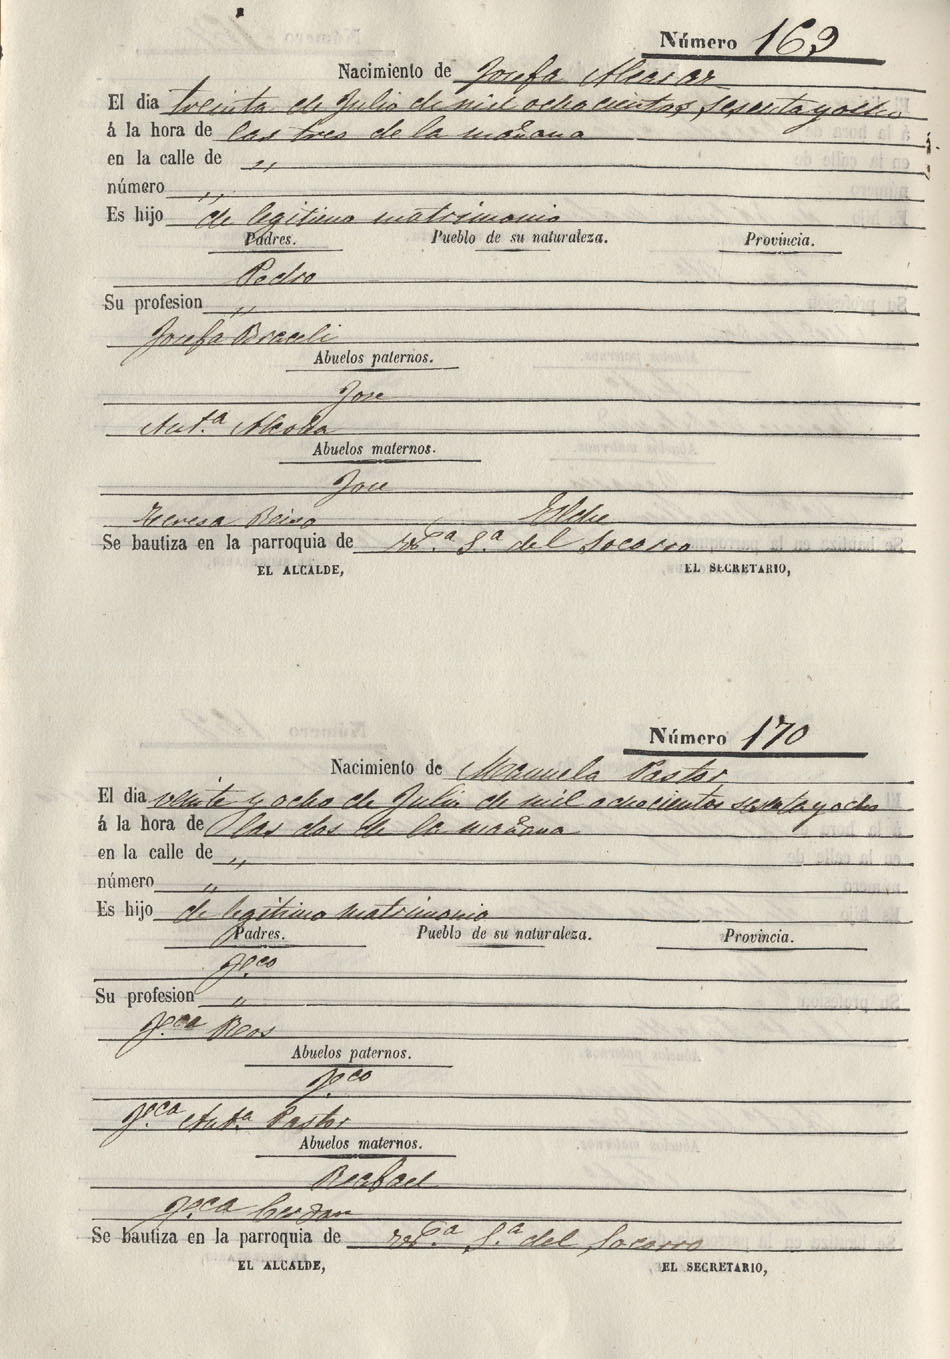 Número 169
Nacimiento de Josefa Alcaraz
El dia treinta de Julio de mil ochocientos sesenta y ocho
á la hora de las tres de la mañana
en la calle de „
número „
Es hijo de legitimo matrimonio
Padres. Pueblo de su naturaleza. Provincia.
Pedro
Su profesion „
Josefa Braceli
Abuelos paternos.
Jose
Ant.ª
Abuelos maternos.
Jose
Teresa Elche
Se bautiza en la parroquia de S.ª del Socorro
EL ALCALDE, EL SECRETARIO,
Número 170
Nacimiento de Manuela Pastor
El dia veinte y ocho de Julio de mil ochocientos sesenta y ocho
á la hora de las dos de la mañana
en la calle de „
número „
Es hijo de legitimo matrimonio
Padres. Pueblo de su naturaleza. Provincia.
F.co
Su profesion „
F.ca Ros
Abuelos paternos.
F.co
F.ca Ant.ª Pastor
Abuelos maternos.
Rafael
F.ca Cerdan
Se bautiza en la parroquia de S.ª del Socorro
EL ALCALDE, EL SECRETARIO,